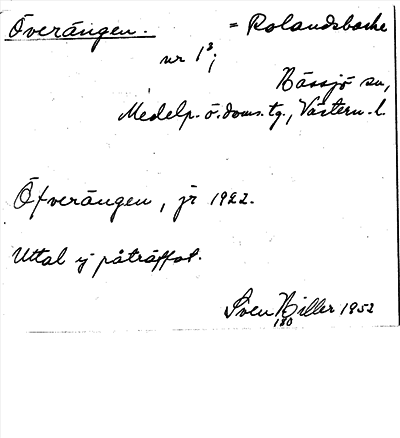 Överängen. = Rolandsbacke
nr 1³;
Nässjö sn,
Medelp. ö. doms. tg., Västern. l.
Öfverängen, jr 1922.
Uttal ej påträffat.
Sven Hiller 1952
180